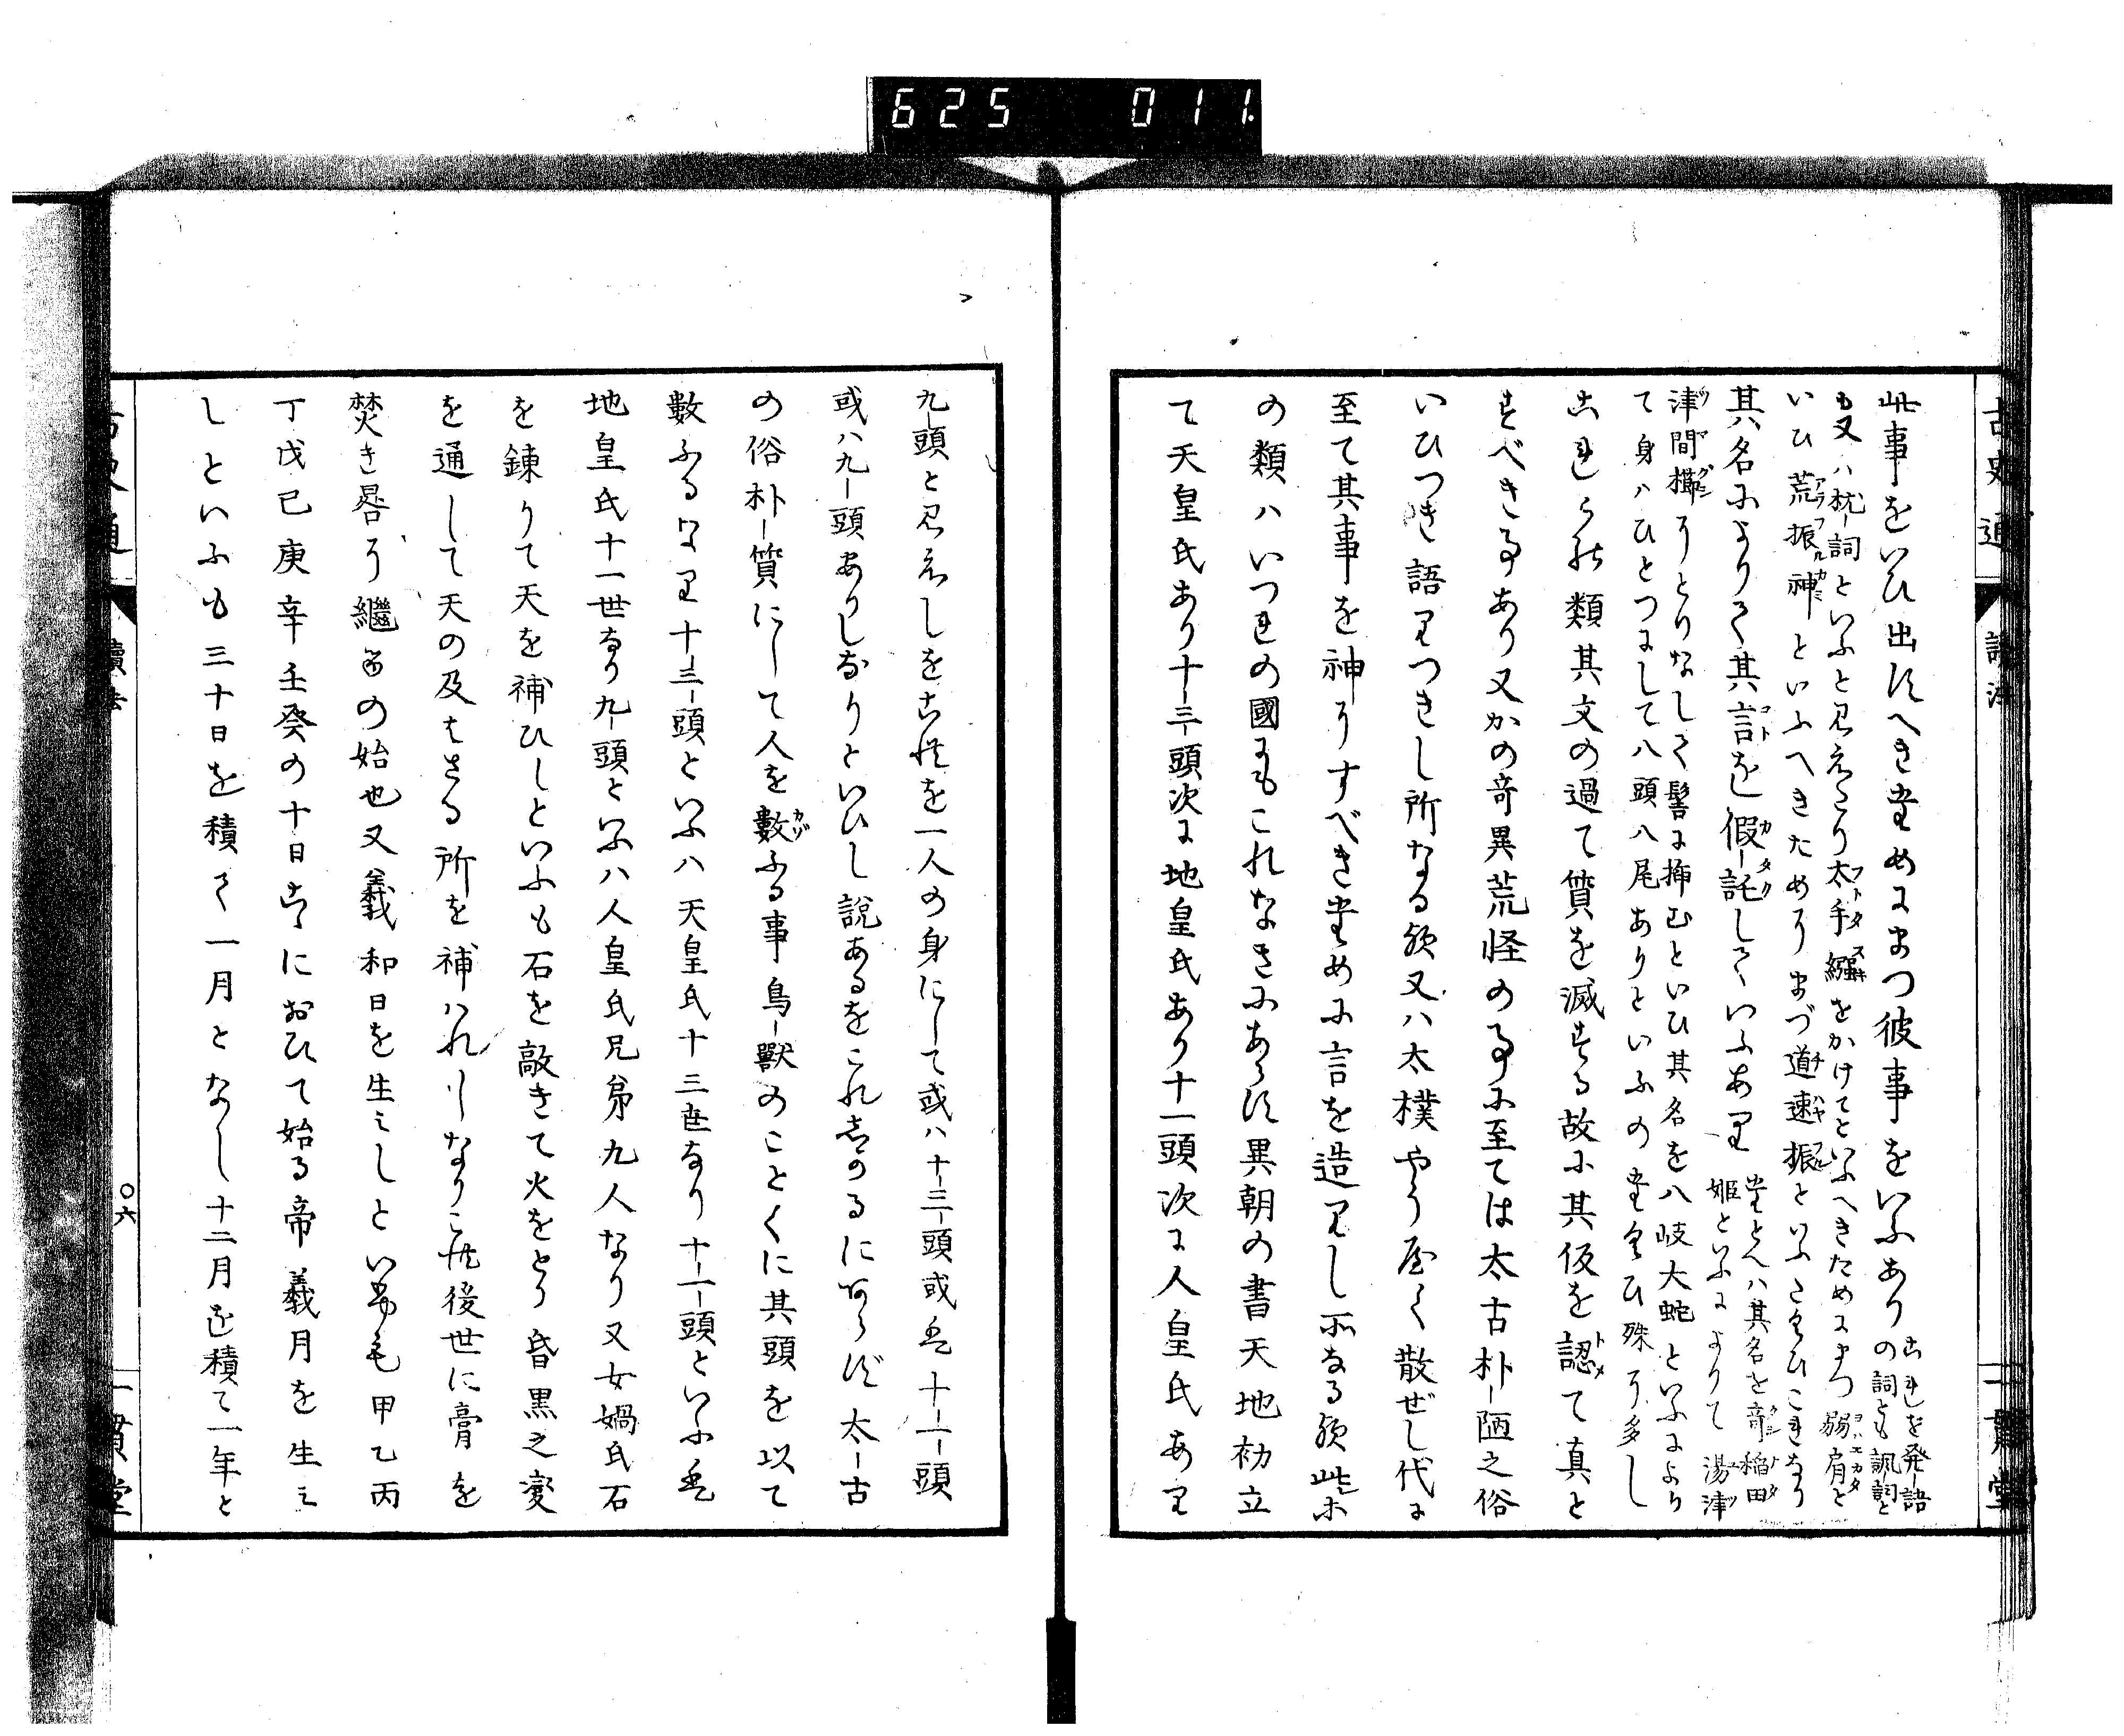 625 011.
古史通 読法 一貫堂
此事をいひ出すへきためにまつ彼事をいふあり これを発語
の詞とも諷詞と
も又ハ枕詞といふと見えたり太手繦をかけてといふへきためにまつ弱肩と
いひ荒振神といふへきためにまづ道速振といふたくひこれなり
其名によりて其言を假託していふあり たとへハ其名を奇稲田
姫といふによりて湯津
津間櫛にとりなして髻に挿むといひ其名を八岐大蛇といふにより
て身ハひとつにして八頭八尾ありといふのたくひ殊に多し
これらの類其文の過て質を滅する故に其仮を認て真と
すべき事あり又かの奇異荒怪の事に至ては太古朴陋之俗
いひつき語りつきし所なる歟又ハ太樸やうやく散ぜし代に
至て其事を神にすべきために言を造りし所なる歟此等
の類ハいつれの國にもこれなきにあらす異朝の書天地初立
て天皇氏あり十三頭次に地皇氏あり十一頭次に人皇氏あり
九頭と見えしをこれを一人の身にして或ハ十三頭或は十一頭
或ハ九頭ありしなりといひし説あるをこれしかるにあらず太古
の俗朴質にして人を數ふる事鳥獸のことくに其頭を以て
數ふるなり十三頭といふハ天皇氏十三世なり十一頭といふは
地皇氏十一世なり九頭といふハ人皇氏兄弟九人なり又女媧氏石
を錬りて天を補ひしといふも石を敲きて火をとり昏黒之變
を通して天の及はさる所を補ハれしなりこれ後世に膏を
焚き晷に繼くの始也又羲和日を生みしといふも甲乙丙
丁戊己庚辛壬癸の十日こゝにおひて始る帝羲月を生み
しといふも三十日を積て一月となし十二月を積て一年と
古史通 讀法 〇六 一貫堂